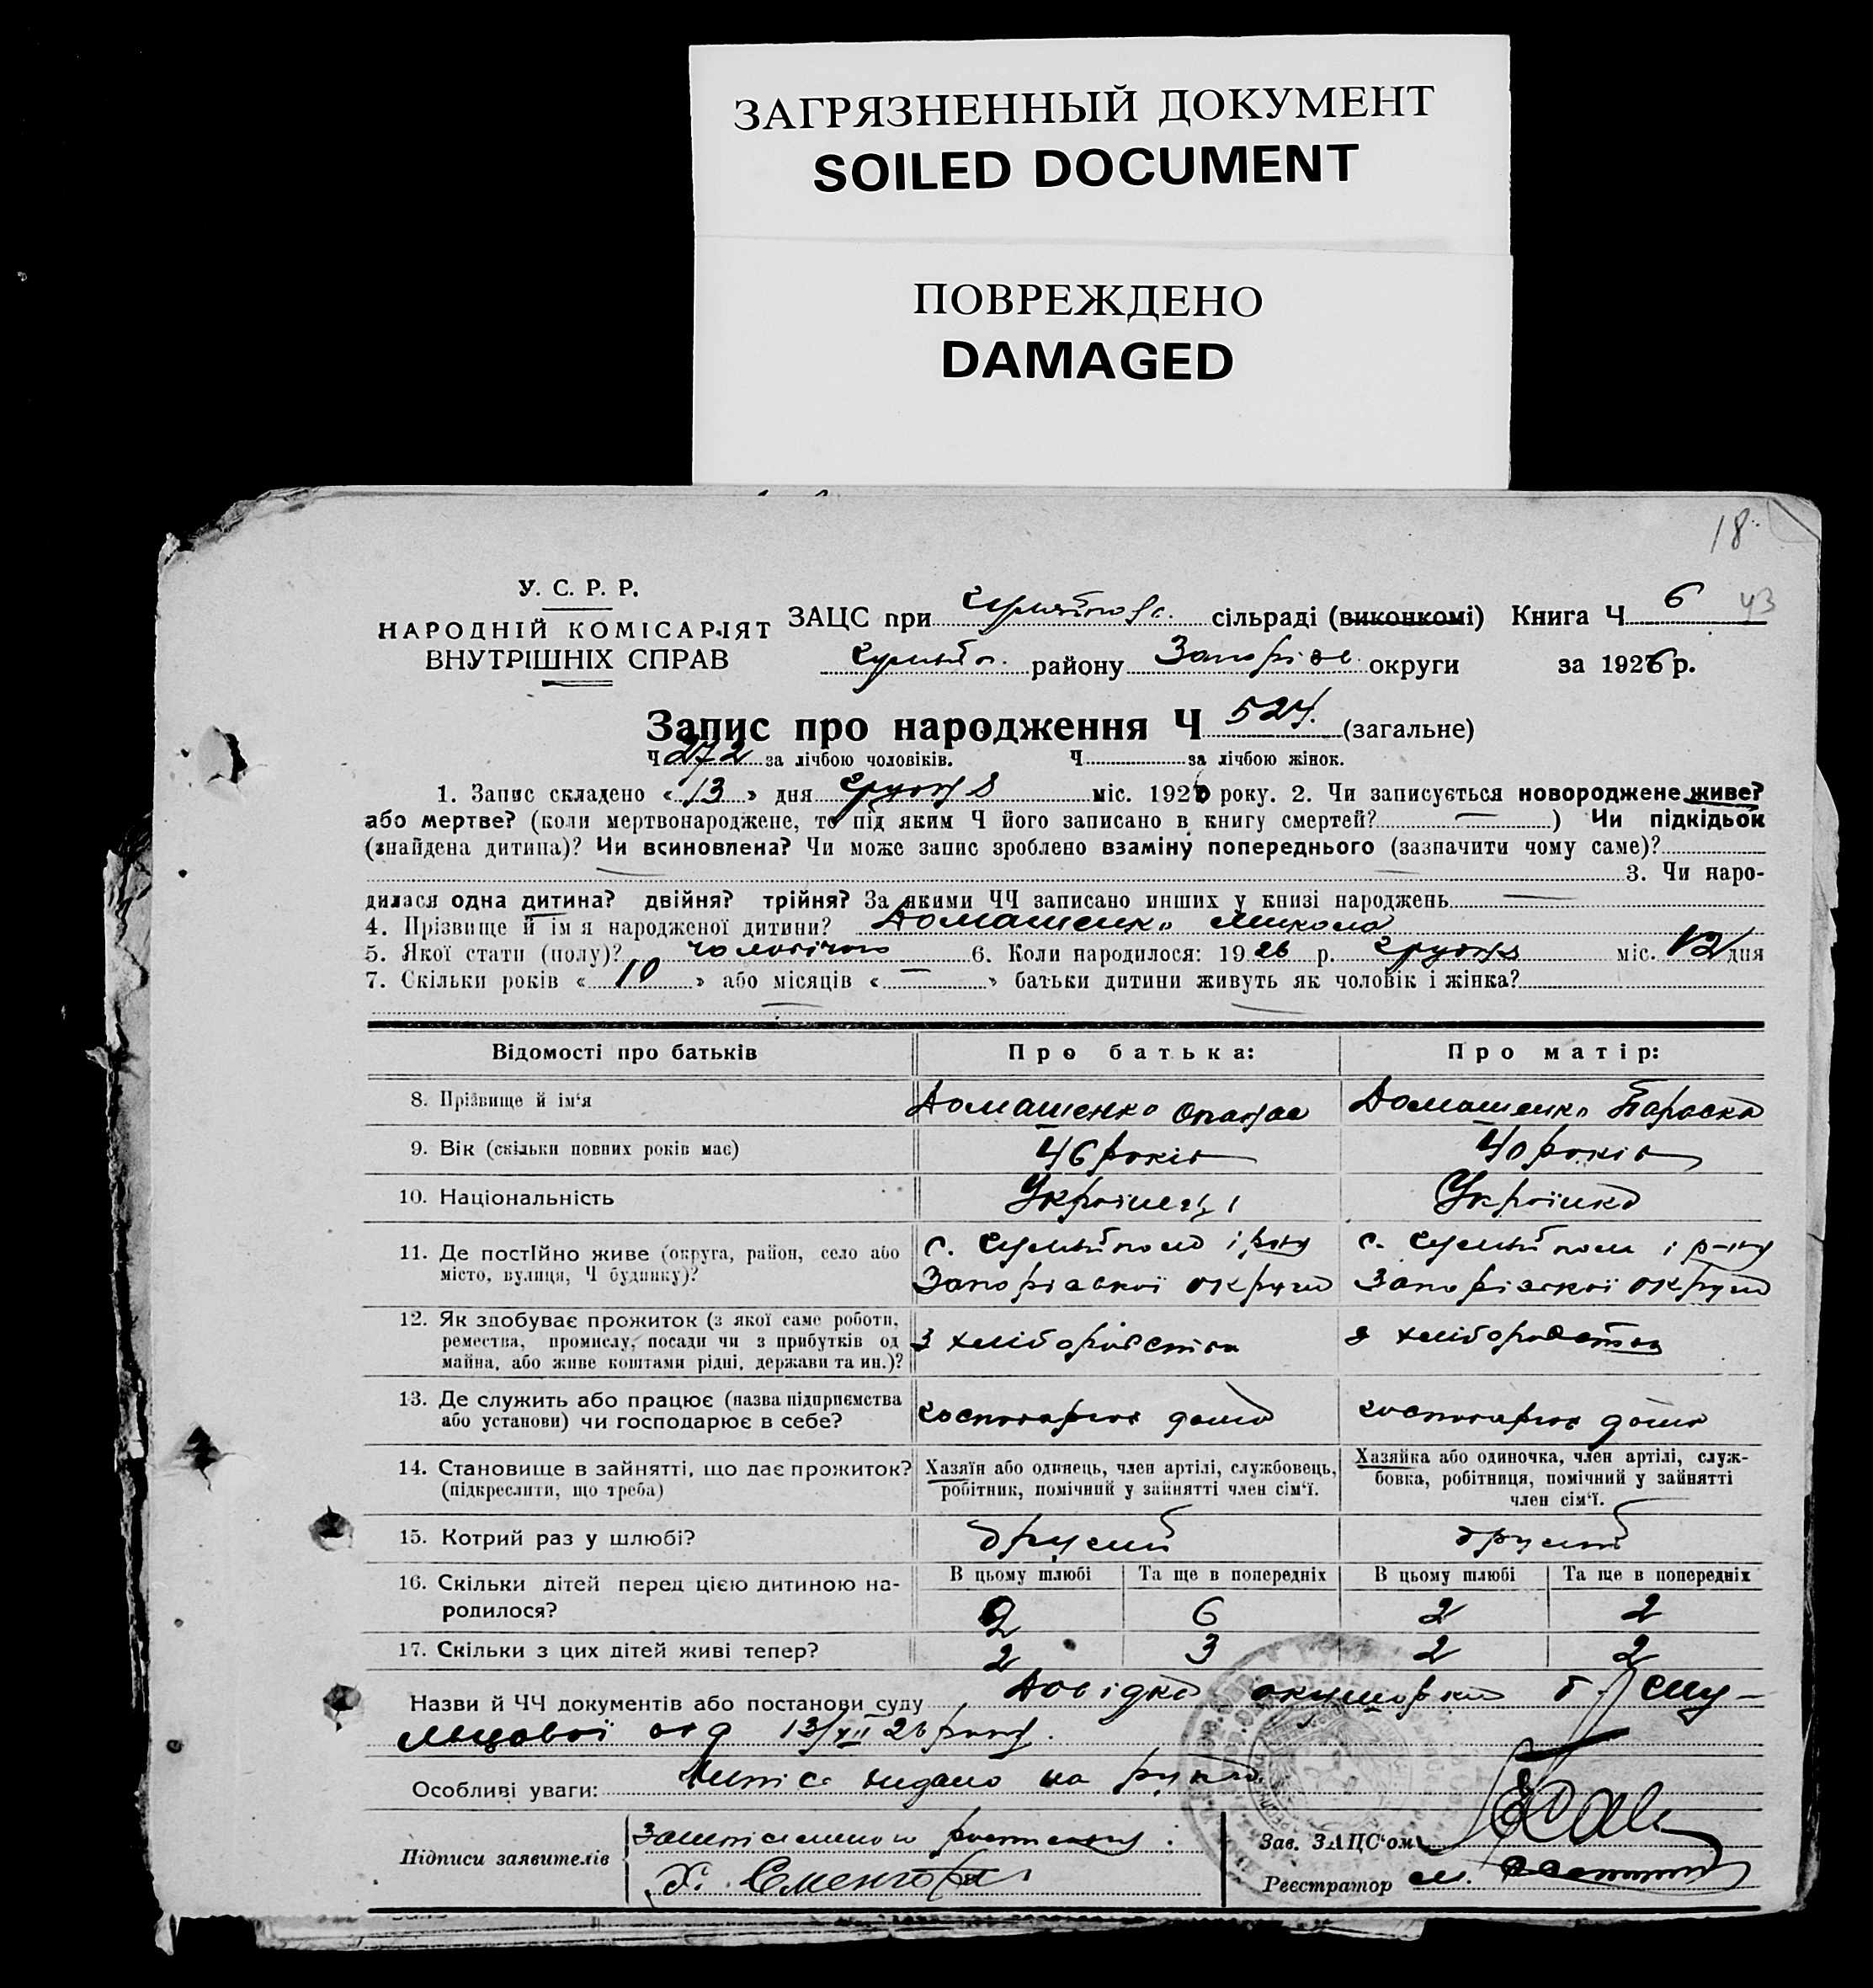 ЗАГРЯЗНЕННЫЙ ДОКУМЕНТ
SOILED DOCUMENT
ПОВРЕЖДЕНО
DAMAGED
18
43
У. С. Р. Р.
НАРОДНІЙ КОМІСАРІЯТ
ВНУТРІШНІХ СПРАВ
ЗАЦС при сільраді (виконкомі) Книга Ч 6
району Запоріз. округи за 1926 р.
Запис про народження Ч 524. (загальне)
Ч 272 за лічбою чоловіків. Ч за лічбою жінок.
1. Запис складено « 13 » дня грудня міс. 1926 року. 2. Чи записується новороджене живе?
або мертве? (коли мертвонароджене, то під яким Ч його записано в книгу смертей? — ) Чи підкідьок
(знайдена дитина)? Чи всиновлена? Чи може запис зроблено взаміну попереднього (зазначити чому саме)?
3. Чи наро-
дилася одна дитина? двійня? трійня? За якими ЧЧ записано инших у книзі народжень —
4. Прізвище й ім'я народженої дитини? Домашенко Микола
5. Якої стати (полу)? чоловічого 6. Коли народилося: 1926 р. грудня міс. 12 дня
7. Скільки років « 10 » або місяців « — » батьки дитини живуть як чоловік і жінка?
Відомості про батьків Про батька: Про матір:
8. Прізвище й ім'я Домашенко Опанас Домашенко Параска
9. Вік (скільки повних років має) 46 років 40 років
10. Національність Українець Українка
11. Де постІйно живе (округа, район, село або с. і р-ну с. і р-ну
місто, вулиця, Ч будинку)? Запорізької округи Запорізької округи
12. Як здобуває прожиток (з якої саме роботи,
ремества, промислу, посади чи з прибутків од з хліборобства з хліборобства
майна, або живе коштами рідні, держави та ин.)?
13. Де служить або працює (назва підприємства
або установи) чи господарює в себе? господарює дома господарює дома
14. Становище в зайнятті, що дає прожиток? Хазяїн або одинець, член артілі, службовець, Хазяйка або одиночка, член артілі, служ-
(підкреслити, що треба) робітник, помічний у зайнятті член сім'ї. бовка, робітниця, помічний у зайнятті
член сім'ї.
15. Котрий раз у шлюбі? другий другий
16. Скільки дітей перед цією дитиною на- В цьому шлюбі Та ще в попередніх В цьому шлюбі Та ще в попередніх
родилося? 2 6 2 2
17. Скільки з цих дітей живі тепер? 2 3 2 2
Назви й ЧЧ документів або постанови суду Довідка акушерки
од 13/XII 26 року.
Особливі уваги: видано на руки
Підписи заявителів
Зав. ЗАЦС'ом
Реєстратор